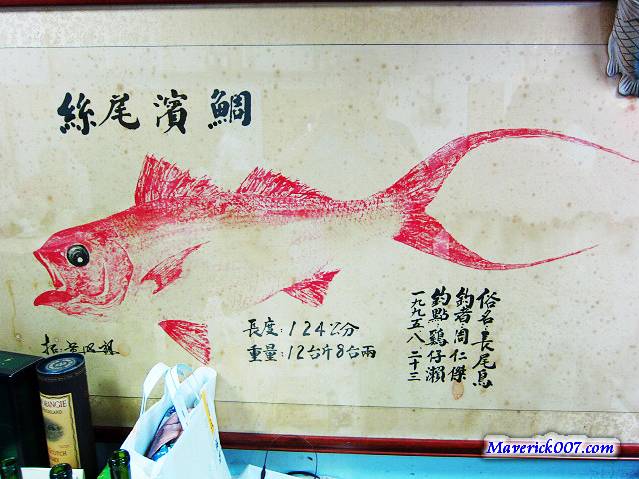 絲尾濱鯛
長度:124公分
重量:12台斤8台兩
俗名:長尾鳥
釣者:周仁傑
釣點:鷄仔瀨
一九九五、八、二十三
Maverick007.com